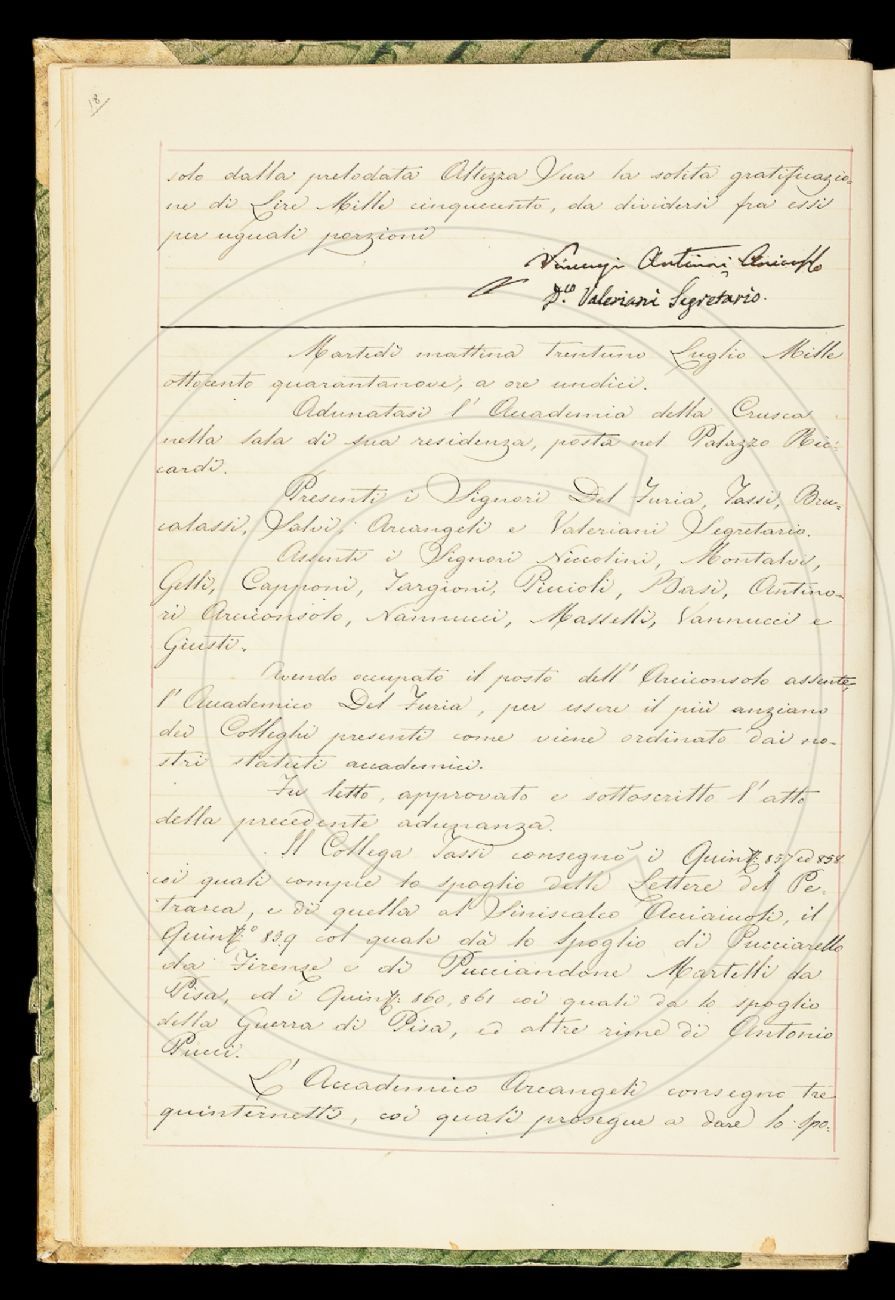 18
solo dalla prelodata Altezza Sua la solita gratificazio=
ne di Lire Mille cinquecento, da dividersi fra essi
per uguali porzioni
Antinori Arciconsolo
D.co Valeriani Segretario.
Martedì mattina trentuno Luglio Mille
ottocento quarantanove, a ore undici.
Adunatasi l'Accademia della Crusca
nella sala di sua residenza, posta nel Palazzo Ric=
cardi.
Presenti i Signori Del Furia, Tassi, Bru=
calassi, Salvi, Arcangeli e Valeriani Segretario.
Assenti i Signori Niccolini, Montalvi,
Gelli, Capponi, Targioni, Puccioli, Basi, Antino=
ri Arciconsolo, Nannucci, Masselli, Vannucci e
Giusti.
Avendo occupato il posto dell'Arciconsolo assente,
l'Accademico Del Furia, per essere il più anziano
dei Colleghi presenti come viene ordinato dai no=
stri statuti accademici.
Fu letto, approvato e sottoscritto l'atto
della precedente adunanza.
Il Collega Tassi consegnò i Quint: 857 ed 858
coi quali compie lo spoglio delle Lettere del Pe=
trarca, e di quella al Siniscalco Acciaiuoli, il
Quint.o 859 col quale dà lo spoglio di Pucciarello
da Firenze e di Pucciandone Martelli da
Pisa, ed i Quint: 860, 861 coi quali dà lo spoglio
della Guerra di Pisa, ed altre rime di Antonio
Pucci.
L'Accademico Arcangeli consegnò tre
quinternetti, coi quali prosegue a dare lo spo=